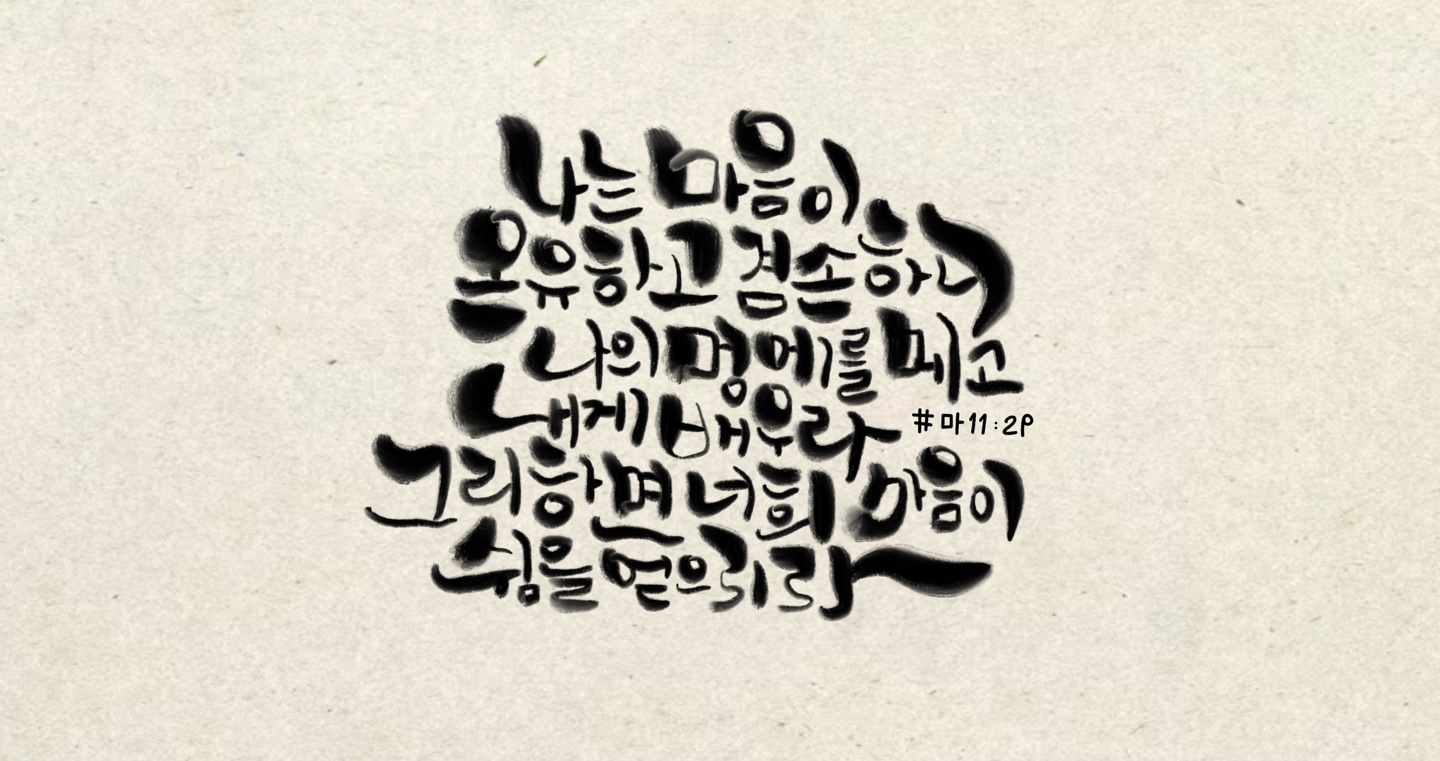 나는 마음이
온유하고 겸손하니
나의 멍에를 메고
내게 배우라
#마11:29
그리하면 너희 마음이
쉼을 얻으리라